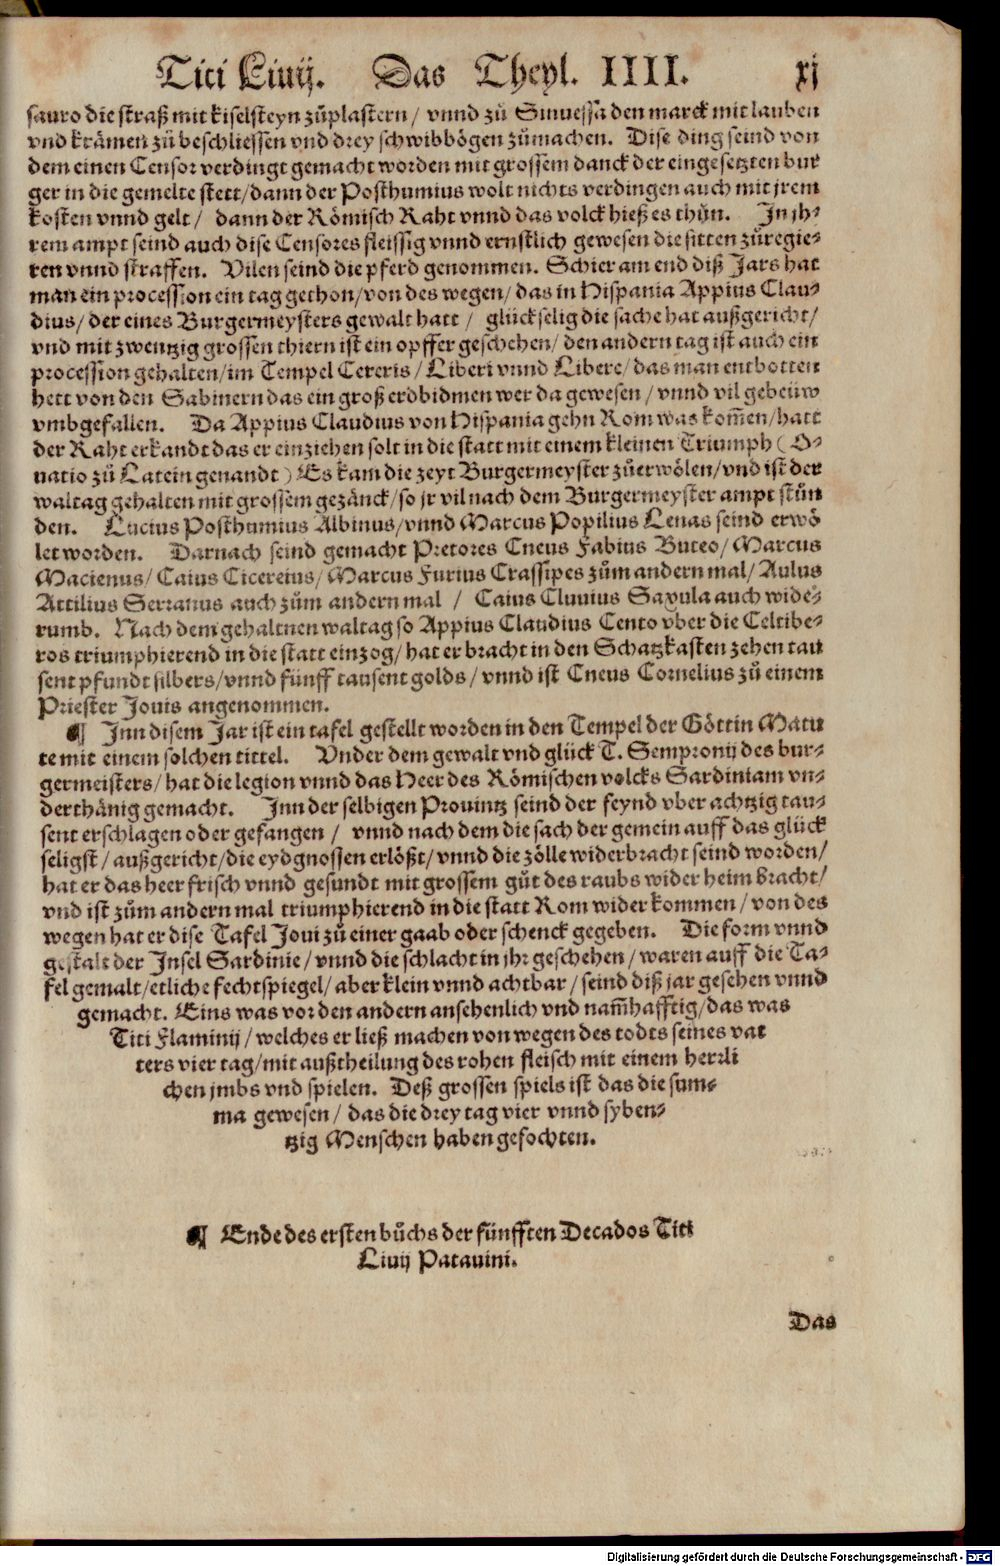 Titi Liuij. Das Theyl. IIII. xj
sauro die straß mit kiselsteyn zůplastern / vnnd zů Sinuessa den marck mit lauben
vnd krämen zů beschliessen vnd drey schwibbögen zůmachen. Dise ding seind von
dem einen Censor verdingt gemacht worden mit grossem danck der eingesetzten bur
ger in die gemelte stett / dann der Posthumius wolt nichts verdingen auch mit jrem
kosten vnnd gelt / dann der Römisch Raht vnnd das volck hieß es thůn. In jh⸗
rem ampt seind auch dise Censores fleissig vnnd ernstlich gewesen die sitten zůregie⸗
ren vnnd straffen. Vilen seind die pferd genommen. Schier am end diß Jars hat
man ein procession ein tag gethon / von des wegen / das in Hispania Appius Clau⸗
dius / der eines Burgermeysters gewalt hatt / glückselig die sache hat außgericht /
vnd mit zwentzig grossen thiern ist ein opffer geschehen / den andern tag ist auch ein
procession gehalten / im Tempel Cereris / Liberi vnnd Libere / das man entbotten
hett von den Sabinern das ein groß erdbidmen wer da gewesen / vnnd vil gebeüw
vmbgefallen. Da Appius Claudius von Hispania gehn Rom was kom̃en / hatt
der Raht erkandt das er einziehen solt in die statt mit einem kleinen Triumph (O⸗
uatio zů Latein genandt) Es kam die zeyt Burgermeyster zůerwölen / vnd ist der
waltag gehalten mit grossem gezänck / so jr vil nach dem Burgermeyster ampt stůn
den. Lucius Posthumius Albinus / vnnd Marcus Popilius Lenas seind erwö
let worden. Darnach seind gemacht Pretores Cneus Fabius Buteo / Marcus
Macienus / Caius Cicereius / Marcus Furius Crassipes zům andern mal / Aulus
Attilius Serranus auch zům andern mal / Caius Cluuius Saxula auch wide⸗
rumb. Nach dem gehaltnen waltag so Appius Claudius Cento vber die Celtibe⸗
ros triumphierend in die statt einzog / hat er bracht in den Schatzkasten zehen tau
sent pfundt silbers / vnnd fünff tausent golds / vnnd ist Cneus Cornelius zů einem
Priester Jouis angenommen.
¶ Inn disem Jar ist ein tafel gestellt worden in den Tempel der Göttin Matu
te mit einem solchen tittel. Vnder dem gewalt vnd glück T. Sempronij des bur⸗
germeisters / hat die legion vnnd das Heer des Römischen volcks Sardiniam vn⸗
derthänig gemacht. Inn der selbigen Prouintz seind der feynd vber achtzig tau⸗
sent erschlagen oder gefangen / vnnd nach dem die sach der gemein auff das glück
seligst / außgericht / die eydgnossen erlößt / vnnd die zölle widerbracht seind worden /
hat er das heer frisch vnnd gesundt mit grossem gůt des raubs wider heim bracht /
vnd ist zům andern mal triumphierend in die statt Rom wider kommen / von des
wegen hat er dise Tafel Joui zů einer gaab oder schenck gegeben. Die form vnnd
gestalt der Insel Sardinie / vnnd die schlacht in jhr geschehen / waren auff die Ta⸗
fel gemalt / etliche fechtspiegel / aber klein vnnd achtbar / seind diß jar gesehen vnnd
gemacht. Eins was vor den andern ansehenlich vnd nam̃hafftig / das was
Titi Flaminij / welches er ließ machen von wegen des todts seines vat
ters vier tag / mit außtheilung des rohen fleisch mit einem herrli
chen jmbs vnd spielen. Deß grossen spiels ist das die sum⸗
ma gewesen / das die drey tag vier vnnd syben⸗
tzig Menschen haben gefochten.
¶ Ende des ersten bůchs der fünfften Decados Titi
Liuij Patauini.
Das
Digitalisierung gefördert durch die Deutsche Forschungsgemeinschaft - DFG